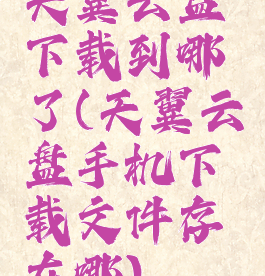 天翼云盘
下载到哪
了(天翼云
盘手机下
载文件存
在哪)